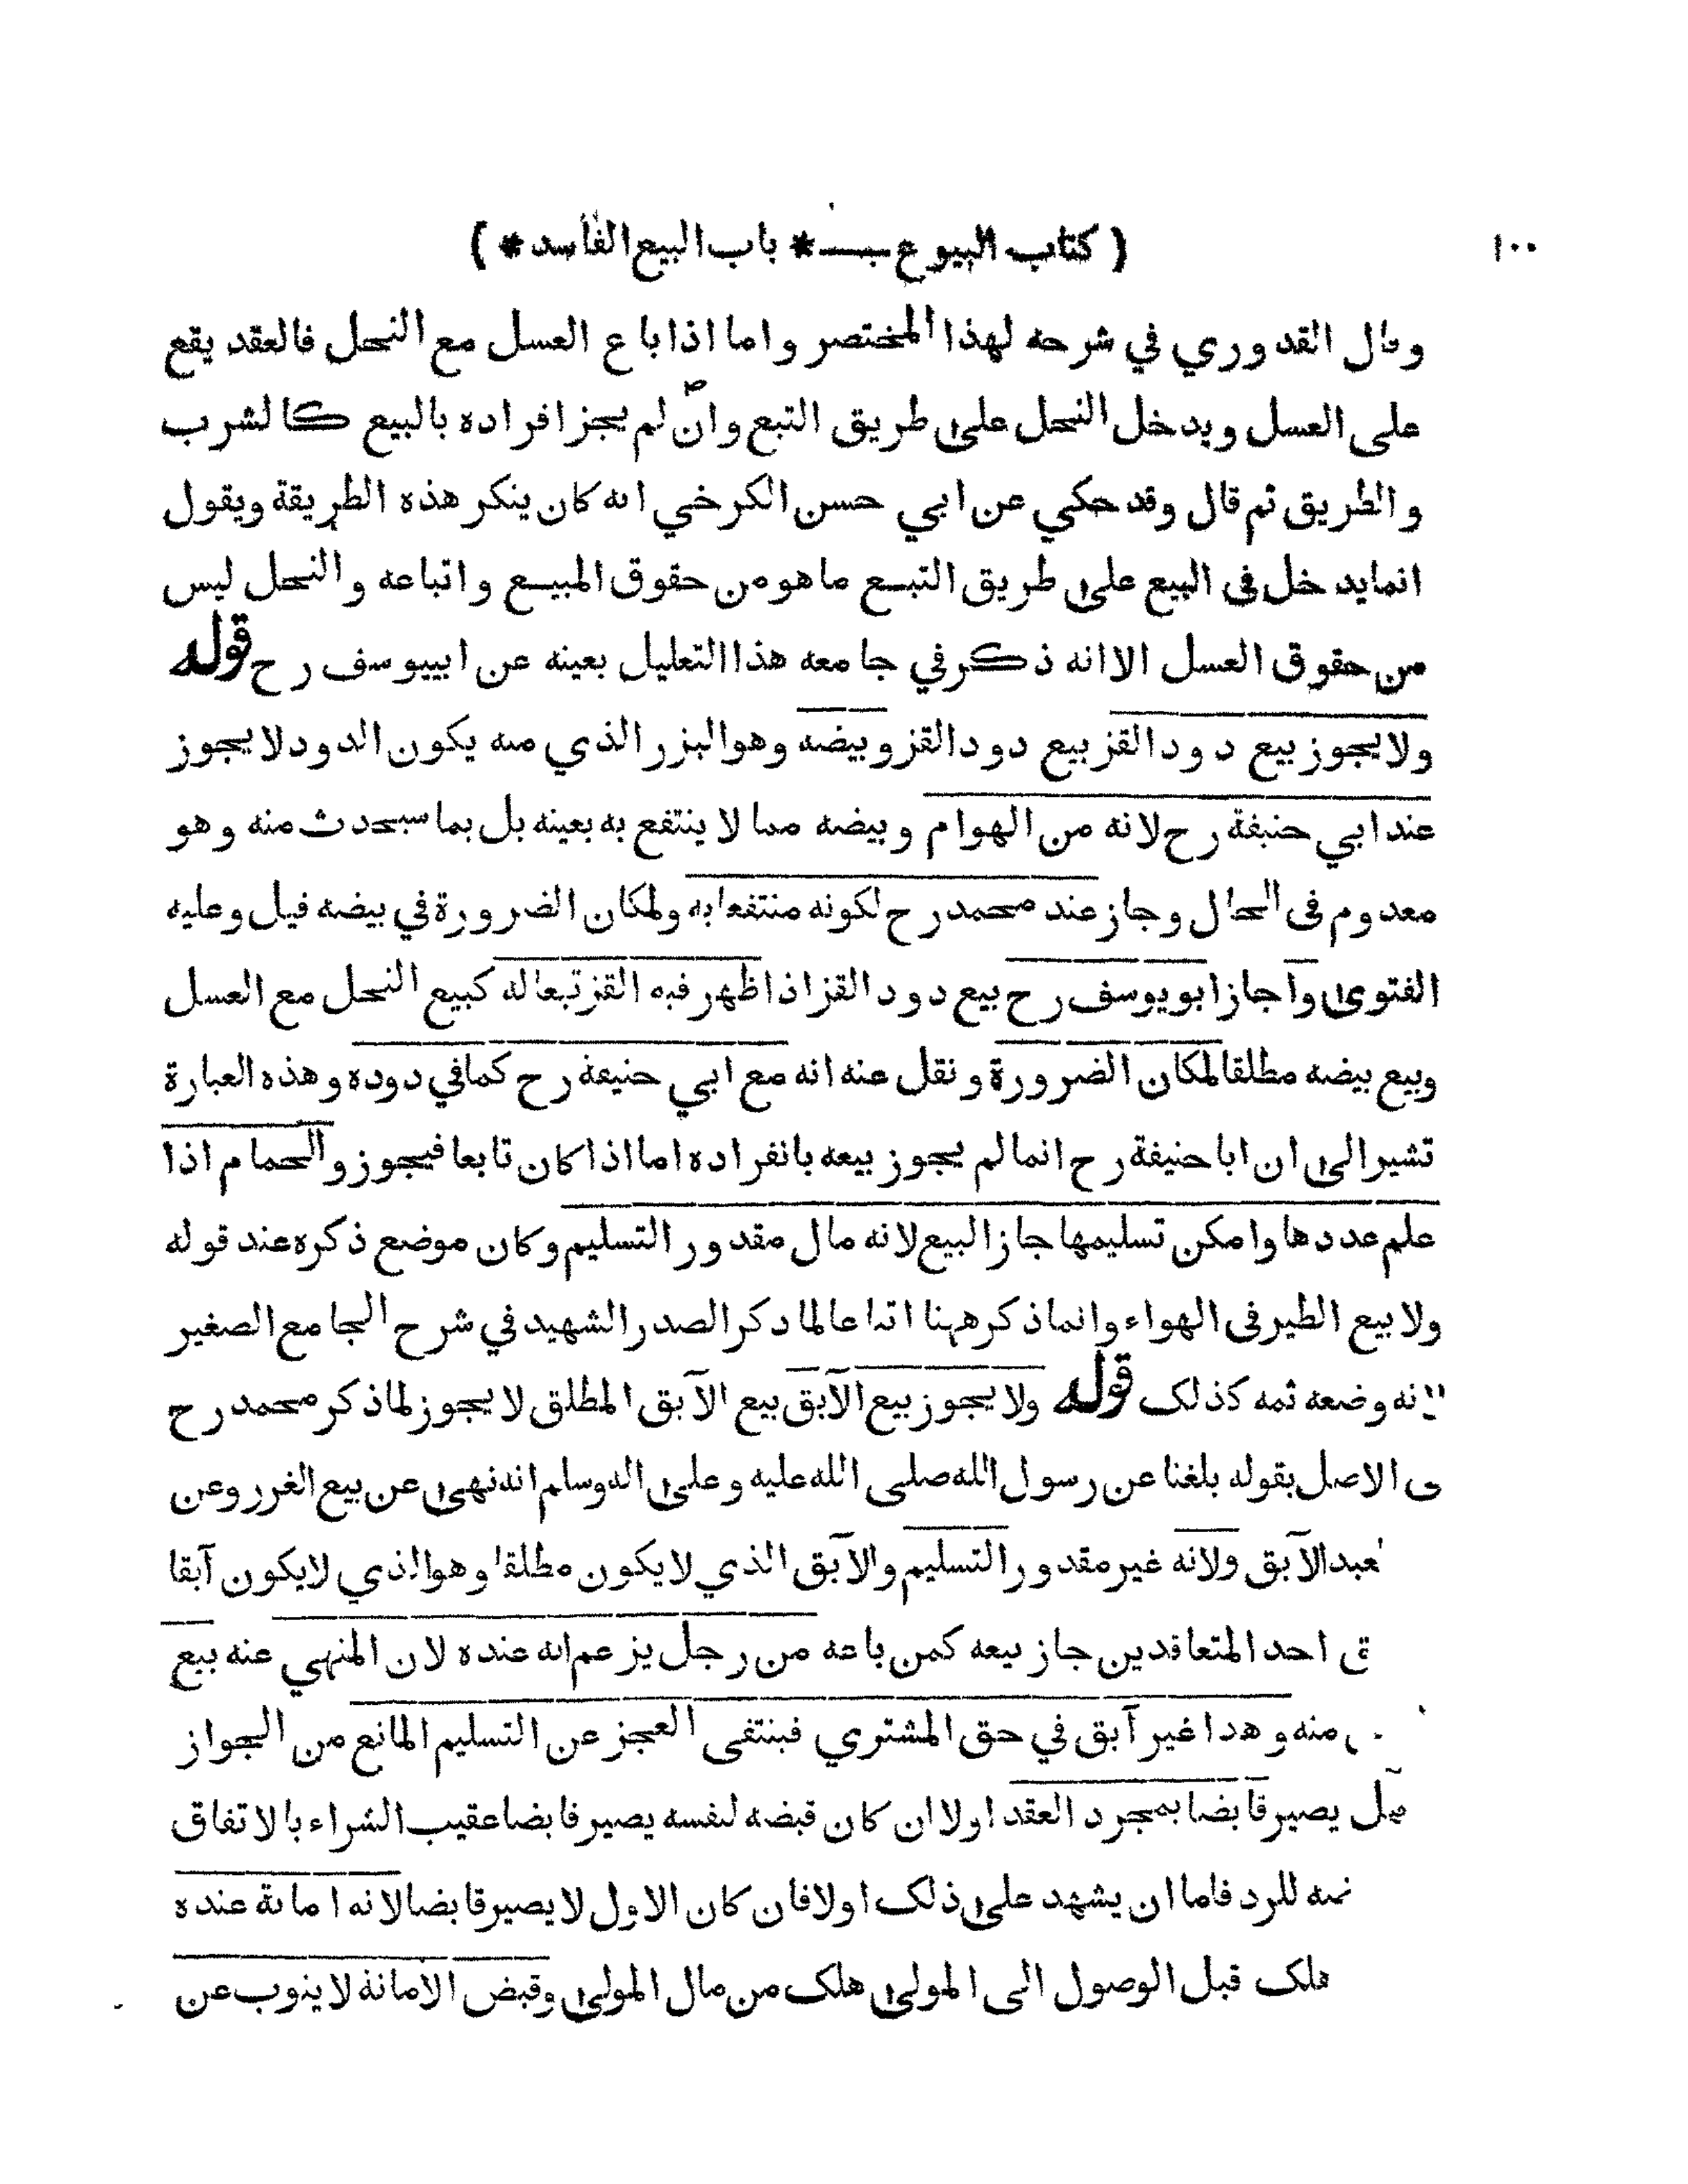 ١٠٠ ( كتاب البيوع — * باب البيع الفاسد * )
وقال القدوري في شرحه لهذا المختصر واما اذا باع العسل مع النحل فالعقد يقع
على العسل ويدخل النحل على طريق التبع وان لم يجز افراده بالبيع كالشرب
والطريق ثم قال وقد حكي عن ابي حسن الكرخي انه كان ينكر هذه الطريقة ويقول
انما يدخل في البيع على طريق التبع ما هو من حقوق المبيع واتباعه والنحل ليس
من حقوق العسل الا انه ذكر في جامعه هذا التعليل بعينه عن ابييوسف رح قوله
ولا يجوز بيع دود القز بيع دود القز وبيضه وهو البزر الذي منه يكون الدود لا يجوز
عند ابي حنيفة رح لانه من الهوام وبيضه مما لا ينتفع به بعينه بل بما سيحدث منه وهو
معدوم في الحال وجاز عند محمد رح لكونه منتفعا به ولمكان الضرورة في بيضه قيل وعليه
الفتوى واجاز ابو يوسف رح بيع دود القز اذا ظهر فيه القز تبعا له كبيع النحل مع العسل
وبيع بيضه مطلقا لمكان الضرورة ونقل عنه انه مع ابي حنيفة رح كما في دوده وهذه العبارة
تشير الى ان ابا حنيفة رح انما لم يجوز بيعه بانفراده اما اذا كان تابعا فيجوز والحمام اذا
علم عددها وامكن تسليمها جاز البيع لانه مال مقدور التسليم وكان موضع ذكره عند قوله
ولا بيع الطير في الهواء وانما ذكر ههنا اتباعا لما ذكر الصدر الشهيد في شرح الجامع الصغير
لانه وضعه ثمه كذلك قوله ولا يجوز بيع الآبق بيع الآبق المطلق لا يجوز لما ذكر محمد رح
في الاصل بقوله بلغنا عن رسول الله صلى الله عليه وعلى اله وسلم انه نهى عن بيع الغرر وعن
العبد الآبق ولانه غير مقدور التسليم والآبق الذي لا يكون مطلقا وهو الذي لا يكون آبقا
احد المتعاقدين جاز بيعه كمن باعه من رجل يزعم انه عنده لان المنهي عنه بيع
منه وهذا غير آبق في حق المشتري فينتفى العجز عن التسليم المانع من الجواز
هل يصير قابضا بمجرد العقد اولا ان كان قبضه لنفسه يصير قابضا عقيب الشراء بالاتفاق
للرد فاما ان يشهد على ذلك اولا فان كان الاول لا يصير قابضا لانه امانة عنده
هلك قبل الوصول الى المولى هلك من مال المولى وقبض الامانة لا ينوب عن